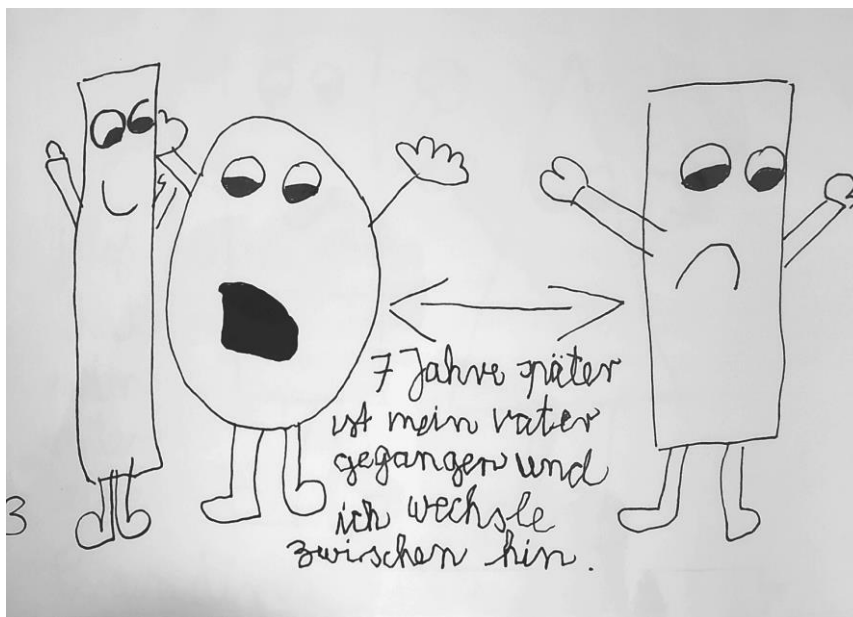 7 Jahre später
ist mein vater
gegangen und
ich wechsle
zwischen hin.
3